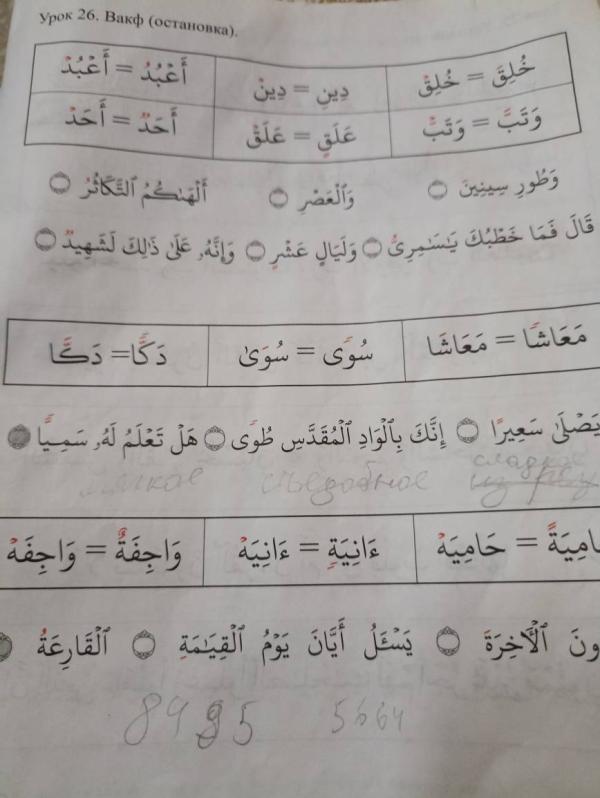 Урок 26. Вакф (остановка).
خُلِقَ = خُلِقْ دِينِ = دِينْ أَعْبُدُ = أَعْبُدْ
وَتَبَّ = وَتَبّْ عَلَقٍ = عَلَقْ أَحَدٌ = أَحَدْ
وَطُورِ سِينِينَ ۝ وَٱلْعَصْرِ ۝ أَلْهَىٰكُمُ ٱلتَّكَاثُرُ ۝
قَالَ فَمَا خَطْبُكَ يَٰسَٰمِرِىُّ ۝ وَلَيَالٍ عَشْرٍ ۝ وَإِنَّهُۥ عَلَىٰ ذَٰلِكَ لَشَهِيدٌ ۝
مَعَاشًا = مَعَاشَا سُوًى = سُوَىٰ دَكًّا = دَكَّا
يَصْلَىٰ سَعِيرًا ۝ إِنَّكَ بِٱلْوَادِ ٱلْمُقَدَّسِ طُوًى ۝ هَلْ تَعْلَمُ لَهُۥ سَمِيًّا ۝
сладкое
съедобное
حَامِيَةً = حَامِيَهْ ءَانِيَةٍ = ءَانِيَهْ وَاجِفَةٌ = وَاجِفَهْ
ونَ ٱلْأَخِرَةَ ۝ يَسْـَٔلُ أَيَّانَ يَوْمُ ٱلْقِيَٰمَةِ ۝ ٱلْقَارِعَةُ ۝
8495 5664